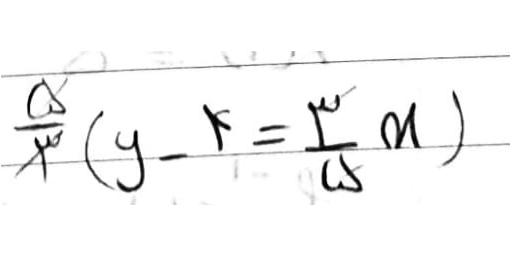 ۵/۳ (y - ۲ = ۳/۵ x)